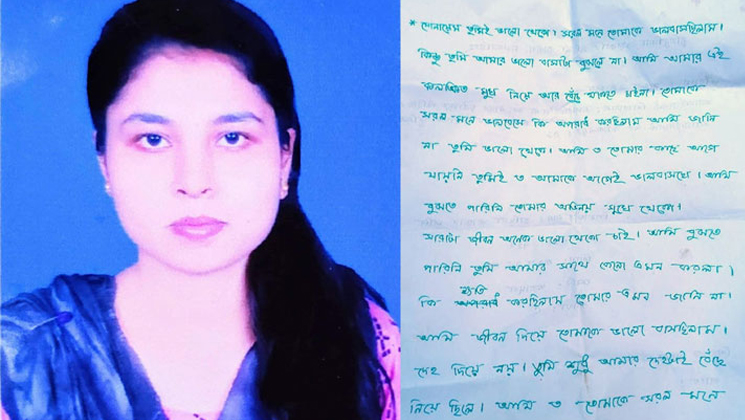 * সোনায়েম তুমিই ভালো থেকো। সরল মনে তোমাকে ভালবাসছিলাম।
কিন্তু তুমি আমার ভালো বাসাটা বুঝলে না। আমি আমার এই
কলঙ্কিত মুখ নিয়ে আর বেঁচে থাকতে চাইনা। তোমাকে
সরল মনে ভালবেসে কি অপরাধ করছিলাম আমি জানি
না তুমি ভালো থেকো। আমি ত তোমার কাছে আগে
যায়নি তুমিই ত আমাকে আগেই ভালবাসছো। আমি
বুঝতে পারিনি তোমার অভিনয় মুখে থেকো।
সারাটা জীবন অনেক ভালো থেকো চাই। আমি বুঝতে
পারিনি তুমি আমার সাথে কেনো এমন করলা।
কি ক্ষতি করছিলাম তোমার এমন জানি না।
আমি জীবন দিয়ে তোমাকে ভালো বাসছিলাম।
দেহ দিয়ে নয়। তুমি শুধু আমার দেহটাই বেঁছে
নিয়ে ছিলে। আমি ত তোমাকে সরল মনে